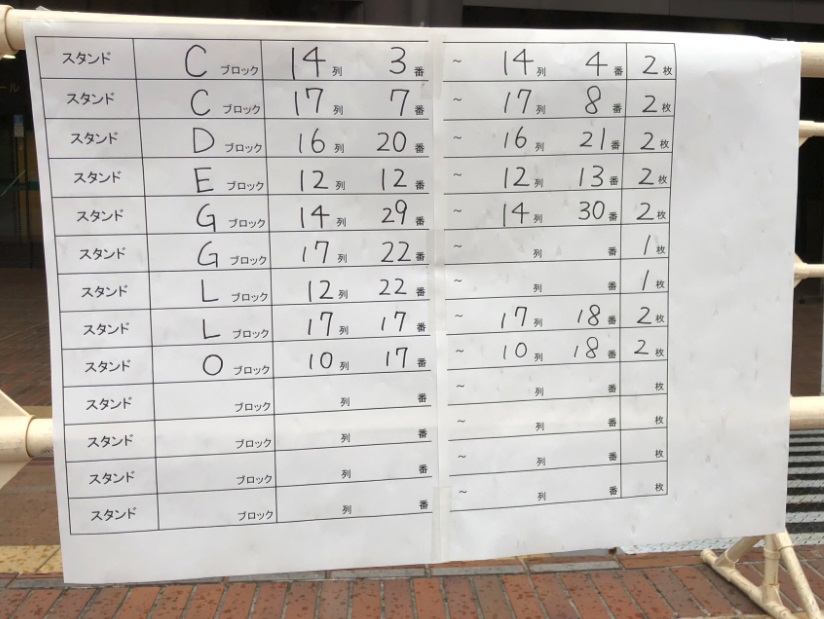 スタンド C ブロック 14 列 3 番 ~ 14 列 4 番 2 枚
スタンド C ブロック 17 列 7 番 ~ 17 列 8 番 2 枚
スタンド D ブロック 16 列 20 番 ~ 16 列 21 番 2 枚
スタンド E ブロック 12 列 12 番 ~ 12 列 13 番 2 枚
スタンド G ブロック 14 列 29 番 ~ 14 列 30 番 2 枚
スタンド G ブロック 17 列 22 番 ~ 列 番 1 枚
スタンド L ブロック 12 列 22 番 ~ 列 番 1 枚
スタンド L ブロック 17 列 17 番 ~ 17 列 18 番 2 枚
スタンド O ブロック 10 列 17 番 ~ 10 列 18 番 2 枚
スタンド ブロック 列 番 ~ 列 番 枚
スタンド ブロック 列 番 ~ 列 番 枚
スタンド ブロック 列 番 ~ 列 番 枚
スタンド ブロック 列 番 ~ 列 番 枚